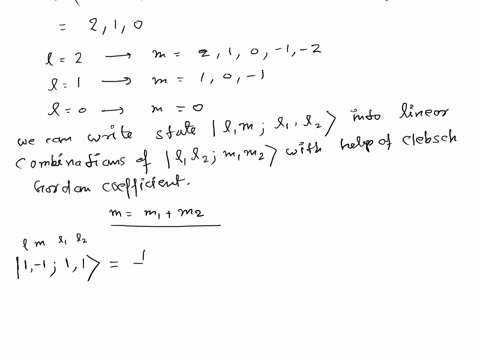 = 2, 1, 0
l = 2 → m = 2, 1, 0, -1, -2
l = 1 → m = 1, 0, -1
l = 0 → m = 0
we can write state |l, m ; l₁, l₂⟩ into linear
combinations of |l₁ l₂ ; m₁ m₂⟩ with help of Clebsch
Gordon coefficient.
m = m₁ + m₂
l m l₁ l₂
|1, -1 ; 1, 1⟩ = 1